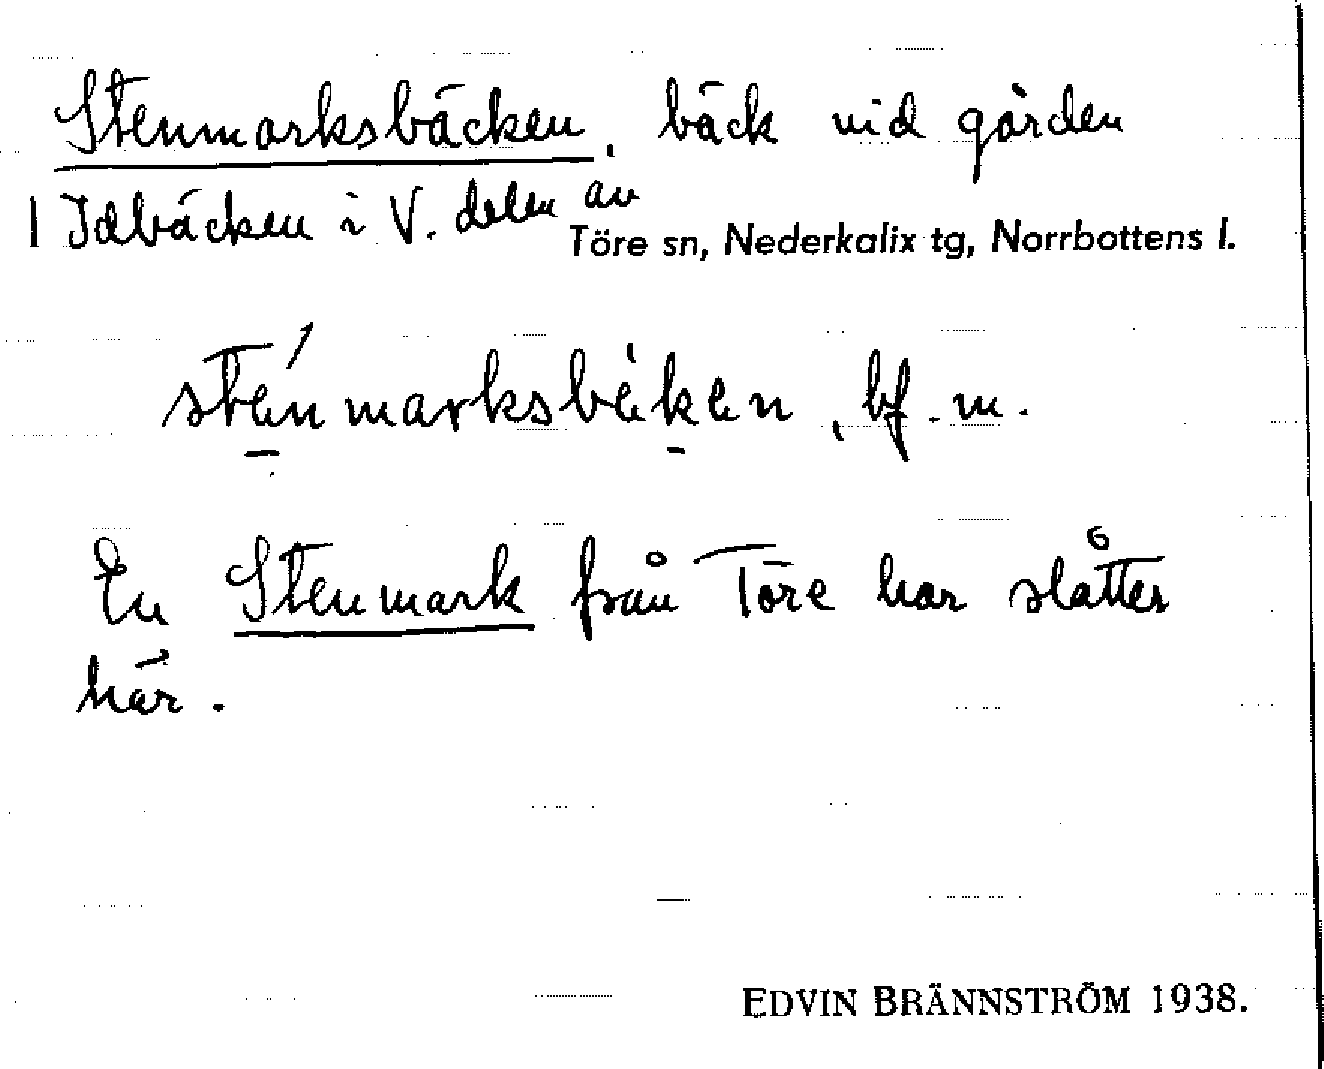 Stenmarksbäcken, bäck vid gården
Idbäcken i V. delen av
Töre sn, Nederkalix tg, Norrbottens l.
sténmarksbèken, bf. m.
En Stenmark från Töre har slåtter
här.
EDVIN BRÄNNSTRÖM 1938.